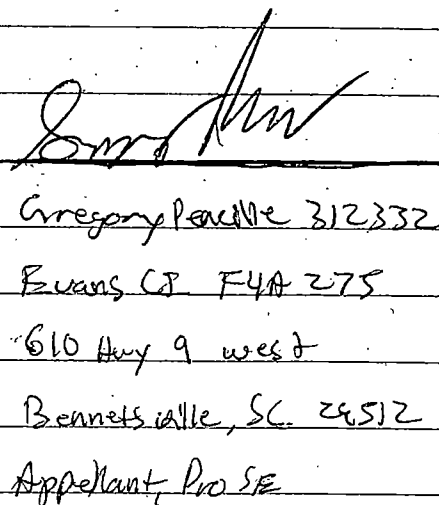 Gregory Pencille 312332
Evans CI F4A 275
610 Hwy 9 west
Bennettsville, SC. 29512
Appellant, Pro SE